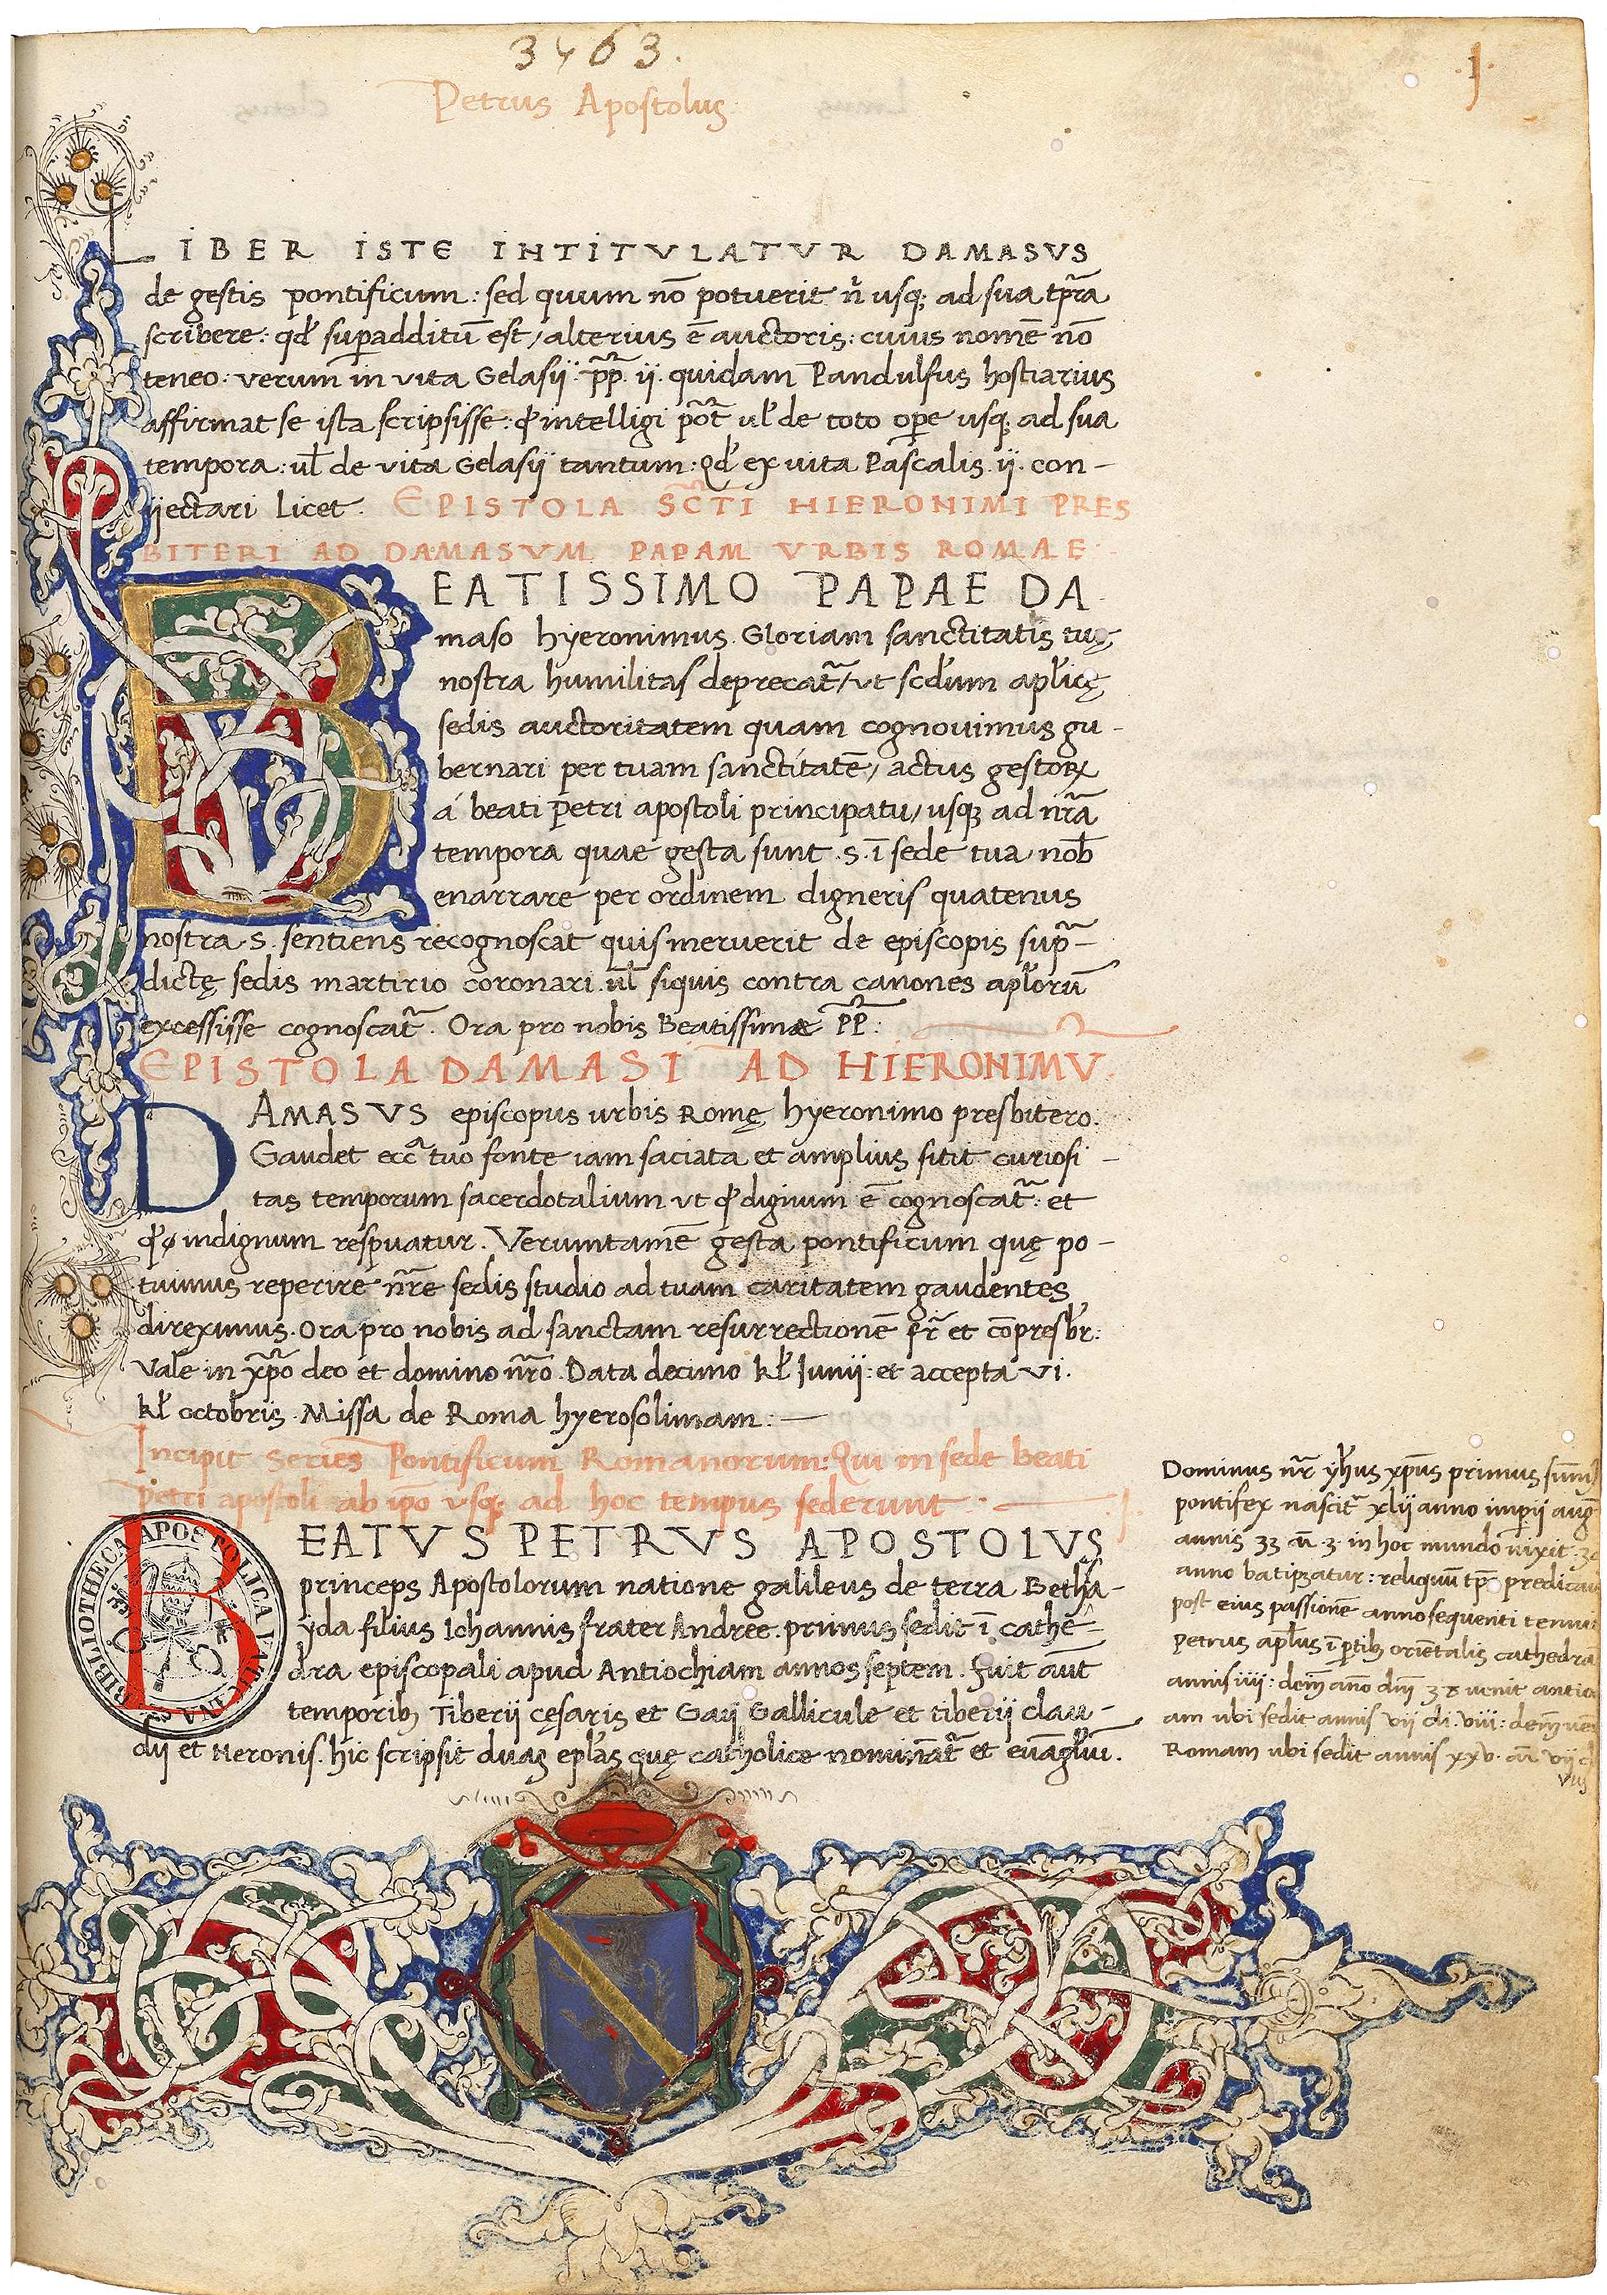 3463.
Petrus Apostolus
.1.
LIBER ISTE INTITVLATVR DAMASVS
de gestis pontificum: sed quum nō potuerit n̄ usq; ad sua tp̄ra
scribere: qd' sup̱additū est / alterius ē auctoris: cuius nomē nō
teneo: verum in vita Gelasij .pp̄. ij. quidam Pandulfus hostiarius
affirmat se ista scripsisse: qđ intelligi pōt ul' de toto op̱e usq; ad sua
tempora: ul' de vita Gelasij tantum: Qd' ex uita Pascalis .ij. con-
ijectari licet. EPISTOLA SC̄TI HIERONIMI PRES
BITERI AD DAMASVM PAPAM VRBIS ROMAE
BEATISSIMO PAPAE DA
maso hyeronimus. Gloriam sanctitatis tuę
nostra humilitas deprecat̄ / ut scđum apl'icę
sedis auctoritatem quam cognouimus gu-
bernari per tuam sanctitatē / actus gestoꝝ
á beati Petri apostoli principatu / usq; ad nr̄a
tempora quae gesta sunt .s. ī sede tua nob̄
enarrare per ordinem digneris quatenus
nostra .s. sentiens recognoscat quis meruerit de episcopis sup̄-
dictę sedis martirio coronari. ul' siquis contra canones apl'orū
excessisse cognoscat̄. Ora pro nobis Beatissime PP̄:
EPISTOLA DAMASI AD HIERONIMV̄.
DAMASVS episcopus urbis Romę hyeronimo presbitero.
Gaudet ecc̄a tuo fonte iam saciata et amplius sitit curiosi-
tas temporum sacerdotalium ut qđ dignum ē cognoscat̄: et
qđ indignum resp̱uatur. Verumtamē gesta pontificum quę po-
tuimus reperire nr̄e sedis studio ad tuam caritatem gaudentes
direximus. Ora pro nobis ad sanctam resurrectionē fr̄ et cōpresbr̄:
Vale in xp̄o deo et domino nr̄o. Data decimo kl' Junij: et accepta VI.
kl' octobris. Missa de Roma hyerosolimam: —
Incipit series Pontificum Romanorum: Qui in sede beati
Petri apostoli ab ip̄o usq; ad hoc tempus sederunt
BEATVS PETRVS APOSTOLVS
princeps Apostolorum natione galileus de terra Bethsa-
yda filius Iohannis frater Andree. primus sedit ī cathe-
dra episcopali apud Antiochiam annos septem. Fuit aūt
temporib; Tiberij cęsaris et Gaij Gallicule et tiberij clau-
dij et Neronis. hic scripsit duas epl'as quę catholice nominat̄ et euāgl'iū.
BIBLIOTHECA APOSTOLICA VATICANA
Dominus nr̄ yh'us xp̄us primus
pontifex nascit̄ xlij anno imp̱ij
annis 33 3. in hoc mundo uixit.
anno batipzatur: reliquū tp̄s
post eius passionē anno sequenti
Petrus apl'us ī p̱tib; oriētalis
annis iiij: deīn año dn̄i 38 uenit
am ubi sedit annis vij viij:
Romam ubi sedit annis xxv. vij